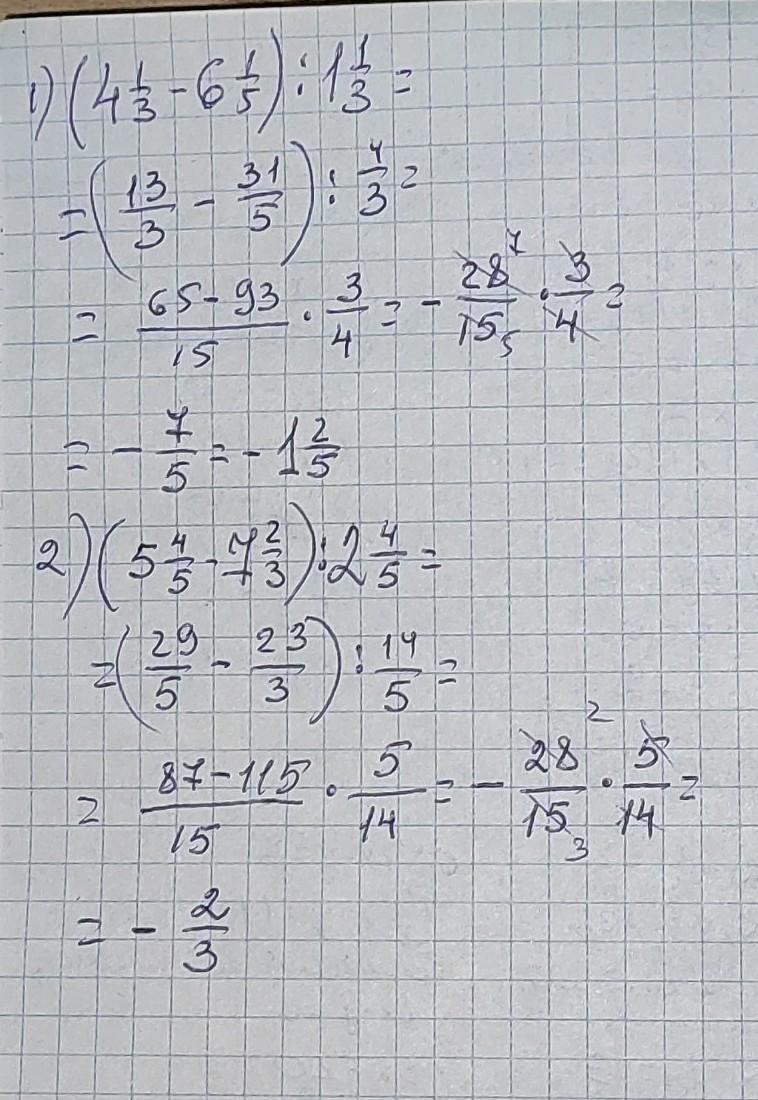 1) (4 1/3 - 6 1/5) : 1 1/3 =
= (13/3 - 31/5) : 4/3 =
= (65 - 93)/15 · 3/4 = - 28/15 · 3/4 = 7 5
= - 7/5 = - 1 2/5
2) (5 4/5 - 7 2/3) : 2 4/5 =
= (29/5 - 23/3) : 14/5 =
= (87 - 115)/15 · 5/14 = - 28/15 · 5/14 = 2 3
= - 2/3